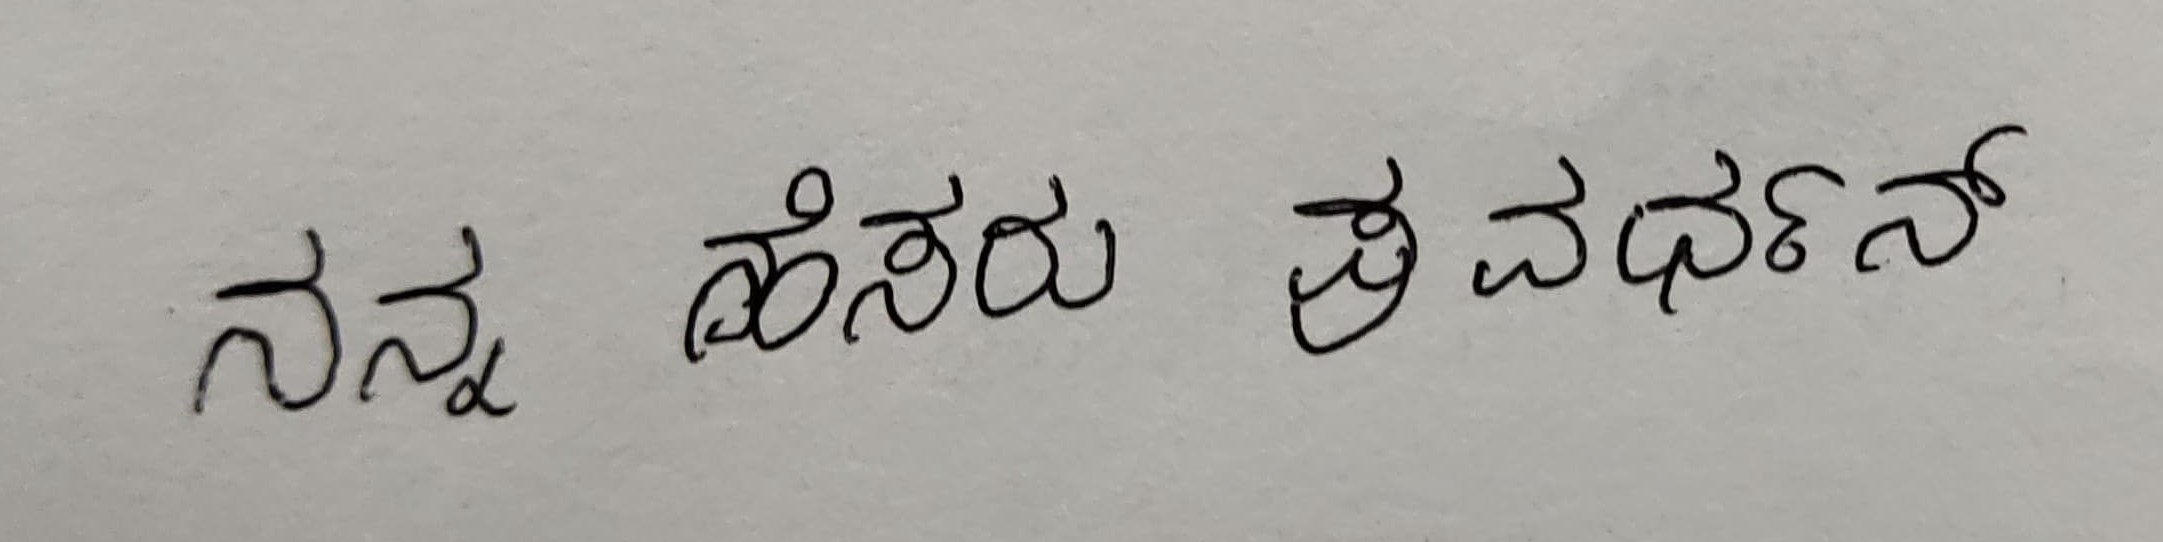 ನನ್ನ ಹೆಸರು ಪ್ರವರ್ಧನ್